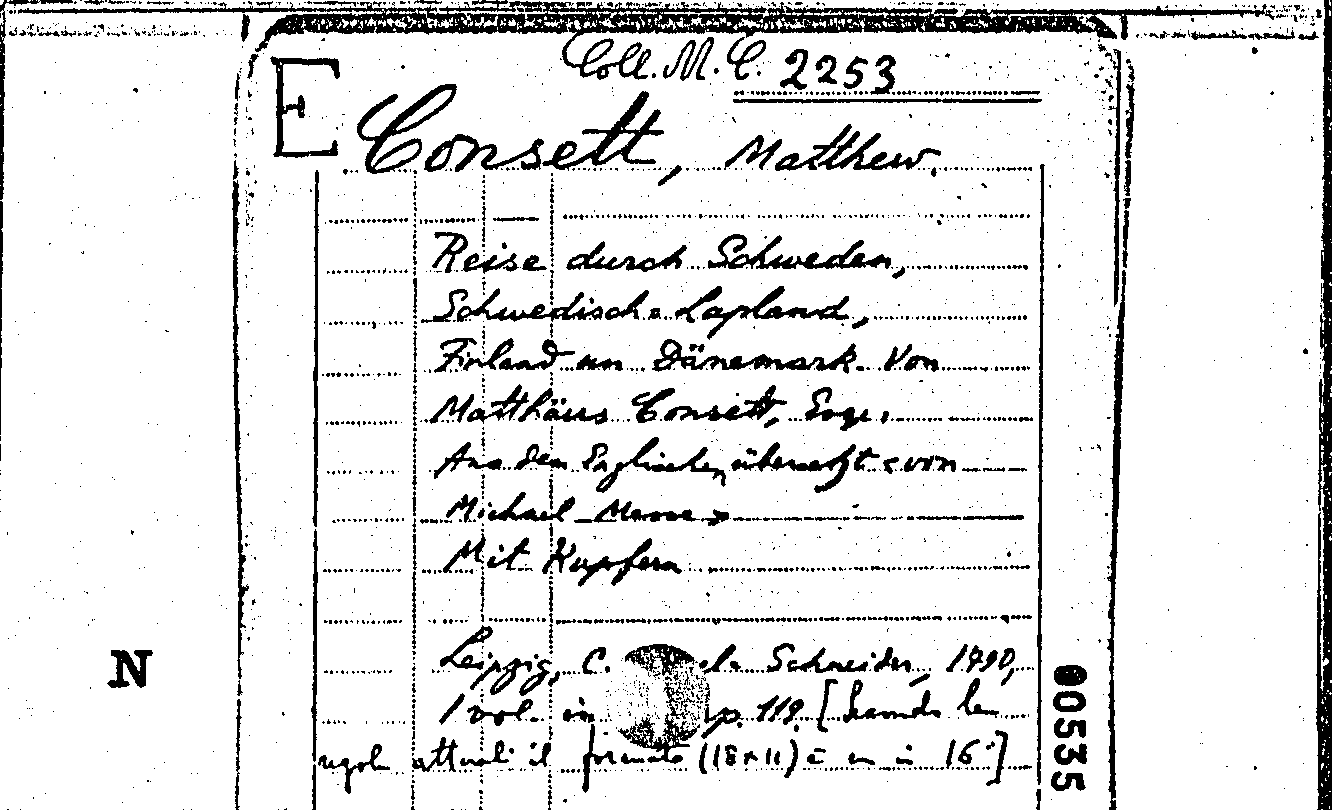 Coll. M. C. 2253
E
Consett, Matthew.
Reise durch Schweden,
Schwedisch=Lapland,
Finland un Dänemark. Von
Matthäus Consett, Esqr.
Aus dem Englischen übersetzt <von
Michael >
Mit Kupfern
Leipzig, C. Schneider, 1790,
1 vol. in p. 119. [secondo le
regole attuali il formato (18×11) è un in 16°]
N
00535